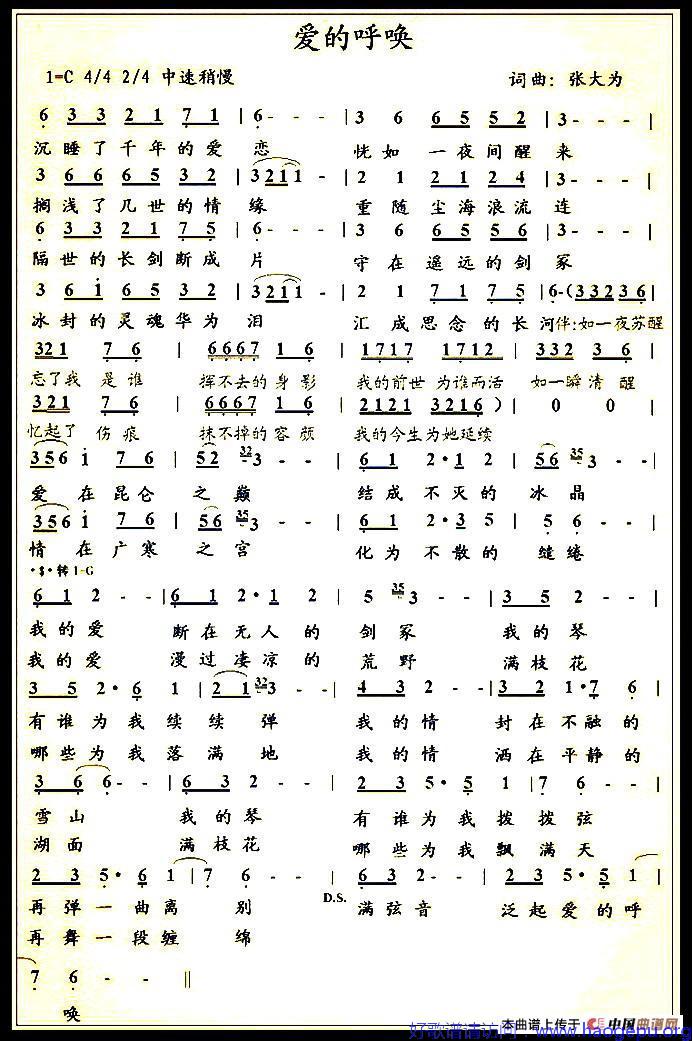 爱的呼唤
1=C 4/4 2/4 中速稍慢 词曲：张大为
6 3 3 2 1 7 1 | 6 - - - | 3 6 6 5 5 2 | 3 - - - |
沉睡了千年的爱恋 恍如一夜间醒来
3 6 6 6 5 3 2 | 3 2 1 1 - | 2 1 2 1 2 4 | 3 - - - |
搁浅了几世的情缘 重随尘海浪流连
6 3 3 2 1 7 5 | 6 - - - | 3 6 6 5 5 6 | 3 - - - |
隔世的长剑断成片 守在遥远的剑冢
3 6 i 6 5 3 2 | 3 2 1 1 - | 2 1 7 1 7 5 | 6 - (3 3 2 3 6 |
冰封的灵魂华为泪 汇成思念的长河伴:如一夜苏醒
3 2 1 7 6 | 6 6 6 7 1 6 | 1 7 1 7 1 7 1 2 | 3 3 2 3 6 |
忘了我是谁 挥不去的身影 我的前世为谁而活 如一瞬清醒
3 2 1 7 6 | 6 6 6 7 1 6 | 2 1 2 1 3 2 1 6 ) | 0 0 |
忆起了伤痕 抹不掉的容颜 我的今生为她延续
3 5 6 i 7 6 | 5 2 32 3 - - | 6 1 2 · 1 2 | 5 6 35 3 - - |
爱在昆仑之巅 结成不灭的冰晶
3 5 6 i 7 6 | 5 6 35 3 - - | 6 1 2 · 3 5 | 5 6 - - |
情在广寒之宫 化为不散的缱绻
·$·转1-G
6 1 2 - - | 6 1 2 · 1 2 | 5 35 3 - - | 3 5 2 - - |
我的爱 断在无人的剑冢 我的琴
我的爱 漫过凄凉的荒野 满枝花
3 5 2 · 6 1 | 2 1 32 3 - - | 4 3 2 - - | 3 2 1 · 7 6 |
有谁为我续续弹 我的情 封在不融的
哪些为我落满地 我的情 洒在平静的
3 6 6 - - | 6 3 2 - - | 2 3 5 · 5 1 | 7 6 - - |
雪山 我的琴 有谁为我拨拨弦
湖面 满枝花 哪些为我飘满天
2 3 5 · 6 1 | 7 6 - - | 6 3 2 - - | 2 3 5 · 5 1 |
D.S.
再弹一曲离别 满弦音 泛起爱的呼
再舞一段缠绵
7 6 - - ||
唤
本曲谱上传于 中国曲谱网
好歌谱请访问：www.haogepu.org